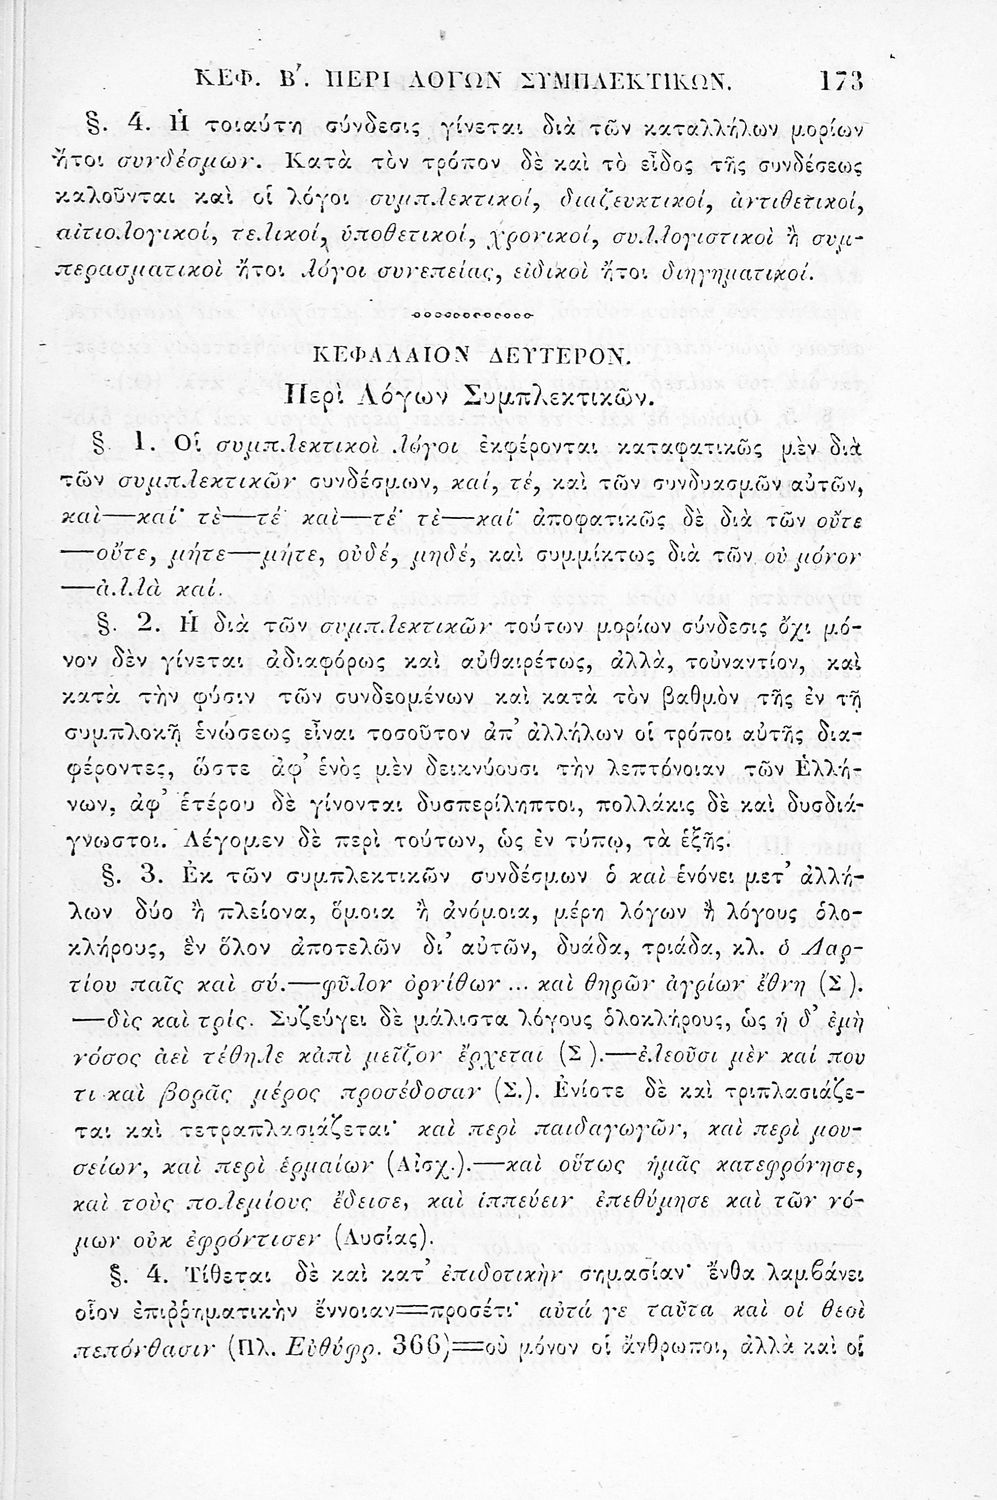 ΚΕΦ. Β΄. ΠΕΡΙ ΛΟΓΩΝ ΣΥΜΠΛΕΚΤΙΚΩΝ. 173
§. 4. Ἡ τοιαύτη σύνδεσις γίνεται διὰ τῶν καταλλήλων μορίων
ἤτοι συνδέσμων. Κατὰ τὸν τρόπον δὲ καὶ τὸ εἶδος τῆς συνδέσεως
καλοῦνται καὶ οἱ λόγοι συμπλεκτικοί, διαζευκτικοί, ἀντιθετικοί,
αἰτιολογικοί, τελικοί, ὑποθετικοί, χρονικοί, συλλογιστικοὶ ἢ συμ-
περασματικοὶ ἤτοι λόγοι συνεπείας, εἰδικοὶ ἤτοι διηγηματικοί.
ΚΕΦΑΛΑΙΟΝ ΔΕΥΤΕΡΟΝ.
Περὶ Λόγων Συμπλεκτικῶν.
§ 1. Οἱ συμπλεκτικοὶ λόγοι ἐκφέρονται καταφατικῶς μὲν διὰ
τῶν συμπλεκτικῶν συνδέσμων, καί, τέ, καὶ τῶν συνδυασμῶν αὐτῶν,
καὶ—καί· τὲ—τέ· καὶ—τέ· τὲ—καί· ἀποφατικῶς δὲ διὰ τῶν οὔτε
—οὔτε, μήτε—μήτε, οὐδέ, μηδέ, καὶ συμμίκτως διὰ τῶν οὐ μόνον
—ἀλλὰ καί.
§. 2. Ἡ διὰ τῶν συμπλεκτικῶν τούτων μορίων σύνδεσις ὄχι μό-
νον δὲν γίνεται ἀδιαφόρως καὶ αὐθαιρέτως, ἀλλὰ, τοὐναντίον, καὶ
κατὰ τὴν φύσιν τῶν συνδεομένων καὶ κατὰ τὸν βαθμὸν τῆς ἐν τῇ
συμπλοκῇ ἑνώσεως εἶναι τοσοῦτον ἀπ᾽ ἀλλήλων οἱ τρόποι αὐτῆς δια-
φέροντες, ὥστε ἀφ᾽ ἑνὸς μὲν δεικνύουσι τὴν λεπτόνοιαν τῶν Ἑλλή-
νων, ἀφ᾽ ἑτέρου δὲ γίνονται δυσπερίληπτοι, πολλάκις δὲ καὶ δυσδιά-
γνωστοι. Λέγομεν δὲ περὶ τούτων, ὡς ἐν τύπῳ, τὰ ἑξῆς.
§. 3. Ἐκ τῶν συμπλεκτικῶν συνδέσμων ὁ καὶ ἑνόνει μετ᾽ ἀλλή-
λων δύο ἢ πλείονα, ὅμοια ἢ ἀνόμοια, μέρη λόγων ἢ λόγους ὁλο-
κλήρους, ἓν ὅλον ἀποτελῶν δι᾽ αὐτῶν, δυάδα, τριάδα, κλ. ὁ Λαρ-
τίου παῖς καὶ σύ.—φῦλον ὀρνίθων ... καὶ θηρῶν ἀγρίων ἔθνη (Σ ).
—δὶς καὶ τρίς. Συζεύγει δὲ μάλιστα λόγους ὁλοκλήρους, ὡς ἡ δ᾽ ἐμὴ
νόσος ἀεὶ τέθηλε κἀπὶ μεῖζον ἔρχεται (Σ ).—ἐλεοῦσι μὲν καί που
τι καὶ βορᾶς μέρος προσέδοσαν (Σ.). Ἐνίοτε δὲ καὶ τριπλασιάζε-
ται καὶ τετραπλασιάζεται· καὶ περὶ παιδαγωγῶν, καὶ περὶ μου-
σείων, καὶ περὶ ἑρμαίων (Αἰσχ.).—καὶ οὕτως ἡμᾶς κατεφρόνησε,
καὶ τοὺς πολεμίους ἔδεισε, καὶ ἱππεύειν ἐπεθύμησε καὶ τῶν νό-
μων οὐκ ἐφρόντισεν (Λυσίας).
§. 4. Τίθεται δὲ καὶ κατ᾽ ἐπιδοτικὴν σημασίαν· ἔνθα λαμβάνει
οἷον ἐπιῤῥηματικὴν ἔννοιαν=προσέτι· αὐτά γε ταῦτα καὶ οἱ θεοὶ
πεπόνθασιν (Πλ. Εὐθύφρ. 366)=οὐ μόνον οἱ ἄνθρωποι, ἀλλὰ καὶ οἱ